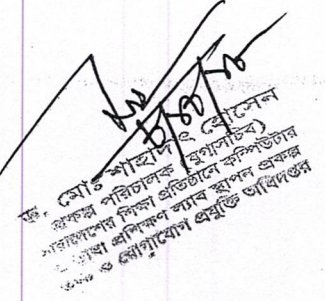 ড. মোঃ শাহাদাৎ হোসেন
প্রকল্প পরিচালক (যুগ্মসচিব)
সারাদেশের শিক্ষা প্রতিষ্ঠানে কম্পিউটার
ও ভাষা প্রশিক্ষণ ল্যাব স্থাপন প্রকল্প
ও যোগাযোগ প্রযুক্তি অধিদপ্তর